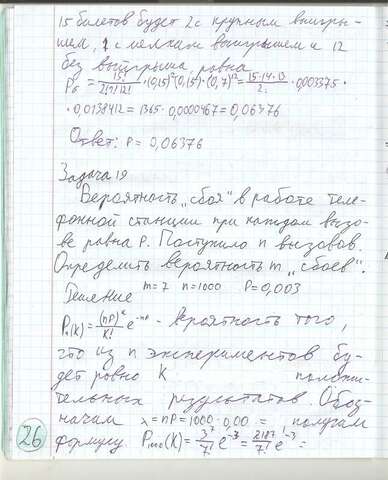 15 билетов будет 2 с крупным выигры-
шем, 1 с мелким выигрышем и 12
без выигрыша равна
P₆ = 15!/(2!1!12!) · (0,15)²(0,15)·(0,7)¹² = 15·14·13/2 · 0,003375 ·
· 0,0138412 = 1365 · 0,0000467 = 0,06376
Ответ: P = 0,06376
Задача 19
Вероятность „сбоя" в работе теле-
фонной станции при каждом вызо-
ве равна P. Поступило n вызовов.
Определить вероятность m „сбоев".
Решение m = 7 n = 1000 P = 0,003
Pₙ(K) = (nP)ᴷ/K! e⁻ⁿᴾ - вероятность того,
что из n экспериментов бу-
дет ровно K положи-
тельных результатов. Обоз-
начим λ = nP = 1000·0,00 = , получим
формулу. P₁₀₀₀(K) = 3⁷/7! e⁻³ = 2187/7! e⁻³ =
26